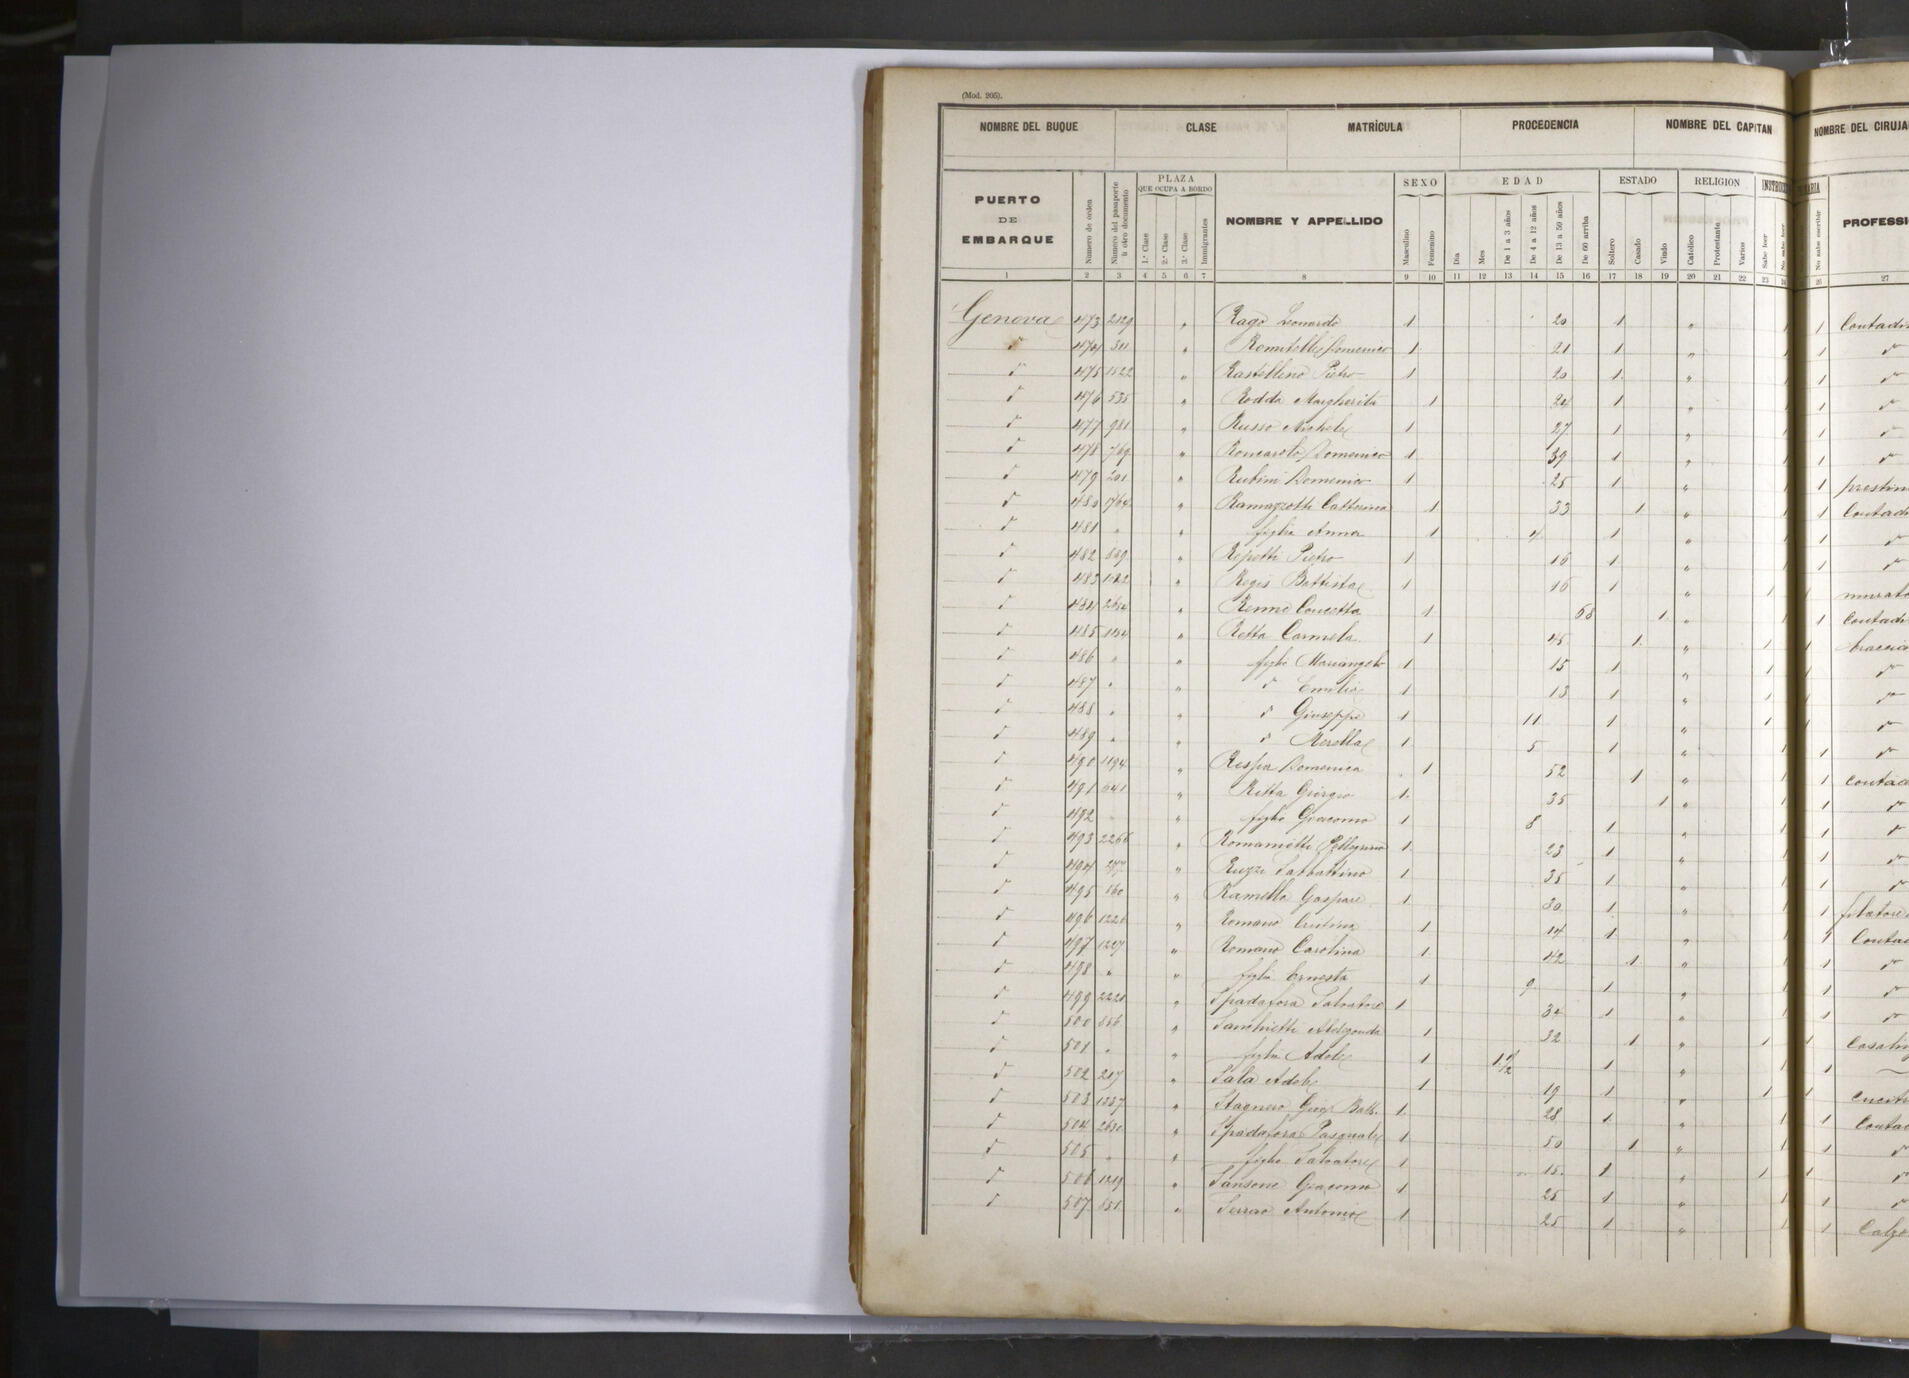 (Mod. 205).
NOMBRE DEL BUQUE CLASE MATRÍCULA PROCEDENCIA NOMBRE DEL CAPITAN NOMBRE DEL CIRUJA
PUERTO DE EMBARQUE Número de orden Número del pasaporte ú otro documento PLAZA QUE OCUPA A BORDO 1.ª Clase 2.ª Clase 3.ª Clase Inmigrantes NOMBRE Y APPELLIDO SEXO Masculino Femenino EDAD Dia Mes De 1 a 3 años De 4 a 12 años De 13 a 59 años De 60 arriba ESTADO Soltero Casado Viudo RELIGION Católico Protestante Varios Sabe leer No sabe leer No sabe escribir PROFESSI
1 2 3 4 5 6 7 8 9 10 11 12 13 14 15 16 17 18 19 20 21 22 23 26 27
Genova 473 2129 " Rago Leonardo 1 20 1 " 1 1 Contadi
d 474 311 " Domenico 1 21 1 " 1 1 d
d 475 1522 " Rastellino Pietro 1 20 1 " 1 1 d
d 476 535 " Rodda Margherita 1 24 1 " 1 1 d
d 477 981 " Russo Michele 1 27 1 " 1 1 d
d 478 769 " Roncarolo Domenico 1 39 1 " 1 1 d
d 479 201 " Rubini Domenico 1 25 1 " 1 1 prestin
d 480 1764 " Ramazzotti Catterina 1 33 1 " 1 1 Contad
d 481 " " figlia Anna 1 4 1 " 1 1 d
d 482 " Repetti Pietro 1 16 1 " 1 1 d
d 483 " Regis Battista 1 16 1 " 1 1 murato
d 484 " Concetta 1 68 1 " 1 1 Contadi
d 485 " Retta Carmela 1 45 1 " 1 1
d 486 " " figlio Mariangelo 1 15 1 " 1 1 d
d 487 " " d Emilio 1 13 1 " 1 1 d
d 488 " " d Giuseppe 1 11 1 " 1 1 d
d 489 " " d 1 5 1 " 1 1 d
d 490 1194 " Domenica 1 52 1 " 1 1 contad
d 491 " Retta Giorgio 1 35 1 " 1 1 d
d 492 " " figlio Giacomo 1 8 1 " 1 1 d
d 493 2266 " Pellegrino 1 23 1 " 1 1 d
d 494 " Ruzzi Sabbattino 1 35 1 " 1 1 d
d 495 160 " Ramello Gaspare 1 30 1 " 1 1 filatore
d 496 1226 " Romano Cristina 1 14 1 " 1 1 Conta
d 497 1227 " Romano Carolina 1 42 1 " 1 1 d
d 498 " " figlia Ernesta 1 9 1 " 1 1 d
d 499 2221 " Spadafora Salvatore 1 34 1 " 1 1 d
d 500 856 " Aldegonda 1 32 1 " 1 1 Casalin
d 501 " " figlia Adele 1 1 1/2 1 " 1 1
d 502 217 " Sala Adele 1 19 1 " 1 1
d 503 1237 " Stagnero Giov Batt. 1 28 1 " 1 1 Conta
d 504 " Spadafora Pasquale 1 50 1 " 1 1 d
d 505 " " figlio Salvatore 1 15 1 " 1 1 d
d 506 1219 " Sansone Giacomo 1 25 1 " 1 1 d
d 507 851 " Serrao Antonio 1 25 1 " 1 1 Calzo